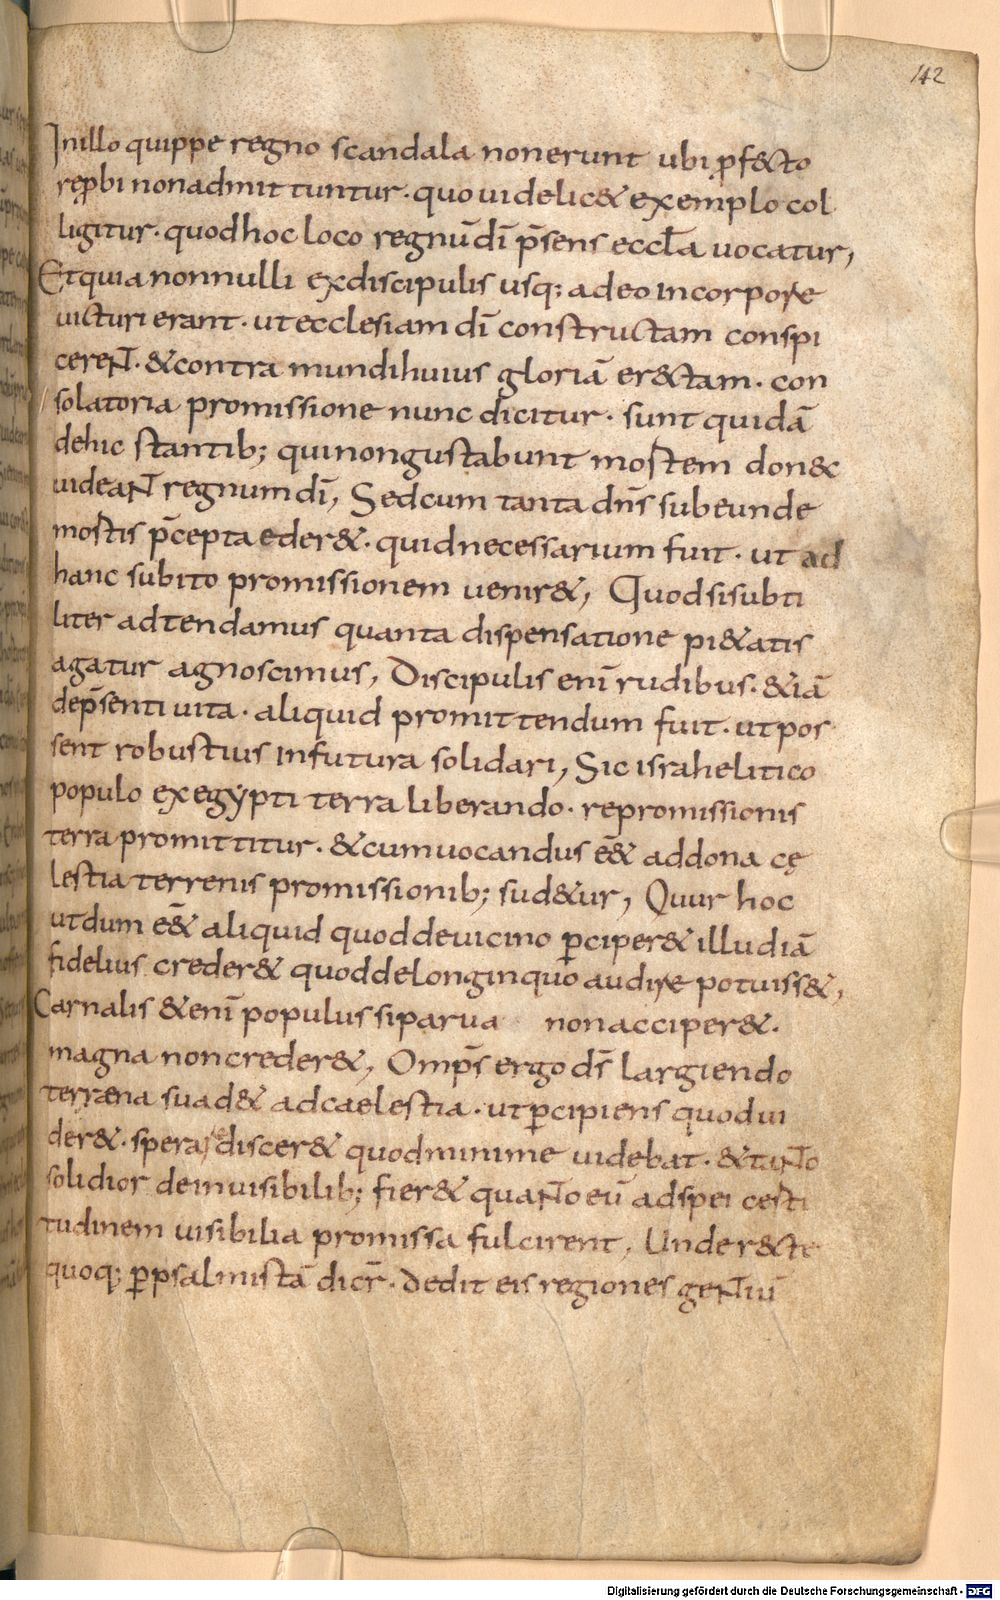 142
Inillo quippe regno scandala nonerunt ubi ꝓf&cto
reꝓbi nonadmittuntur · quo uidelic& exemplo col
ligitur · quodhoc loco regnū dī p̄sens eccl̄a uocatur,
Etquia nonnulli exdiscipulis usq; adeo incorpore
uicturi erant · ut ecclesiam dī constructam conspi
cerent · &contra mundi huius gloriā er&ctam · con
solatoria promissione nunc dicitur · sunt quidā
dehic stantib; quinongustabunt mortem don&c
uideant regnum dī, Sedcum tanta dn̄s subeunde
mortis p̄cepta eder& · quidnecessarium fuit · ut ad
hanc subito promissionem uenir&, Quodsisubti
liter adtendamus quanta dispensatione pi&atis
agatur agnoscimus, Discipulis enī rudibus · &iā
dep̄senti uita · aliquid promittendum fuit · ut pos
sent robustius infutura solidari, Sic israhelitico
populo ex egypti terra liberando · repromissionis
terra promittitur · &cumuocandus ēē& addona cę
lestia terrenis promissionib; suad&ur, Quur hoc
utdum ēē& aliquid quoddeuicino ꝑciper& illudiā
fidelius creder& quoddelonginquo audire potuiss&,
Carnalis &enī populus siparua nonacciper& ·
magna noncreder&, Omp̄s ergo ds̄ largiendo
terræna suad& adcaelestia · ut ꝑcipiens quodui
der& · sperare discer& quodminime uidebat · &tanto
solidior deinuisibilib; fier& quanto eū adspei certi
tudinem uisibilia promissa fulcirent, Under&cte
quoq; ꝑpsalmistā dicr̄ · Dedit eis regiones gentiū
Digitalisierung gefördert durch die Deutsche Forschungsgemeinschaft - DFG